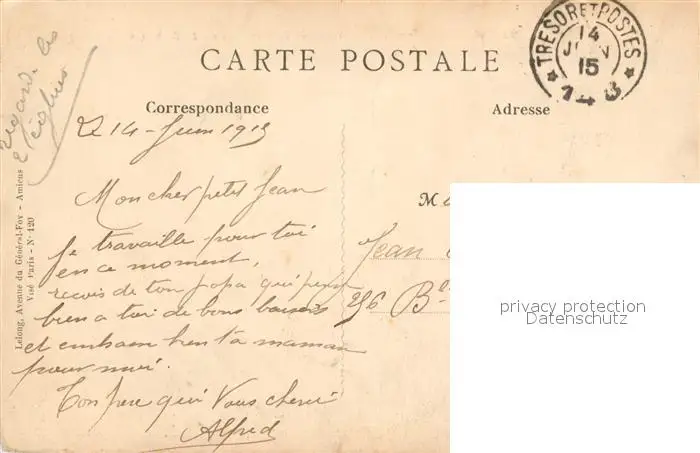 CARTE POSTALE
TRESOR ET POSTES
14
JUIN
15
* 143 *
Correspondance
Adresse
regarde les
2 églises
14 - Juin 1915
Mon cher petit Jean
Je travaille pour toi
en ce moment,
recois de ton papa qui pense
bien a toi de bons baisers
et embrasse bien ta maman
pour moi.
Ton pere qui vous cheri
Alfred
M
Jean
236 B
Lelong, Avenue du Général-Foy - Amiens
Visé Paris - N° 120
privacy protection
Datenschutz